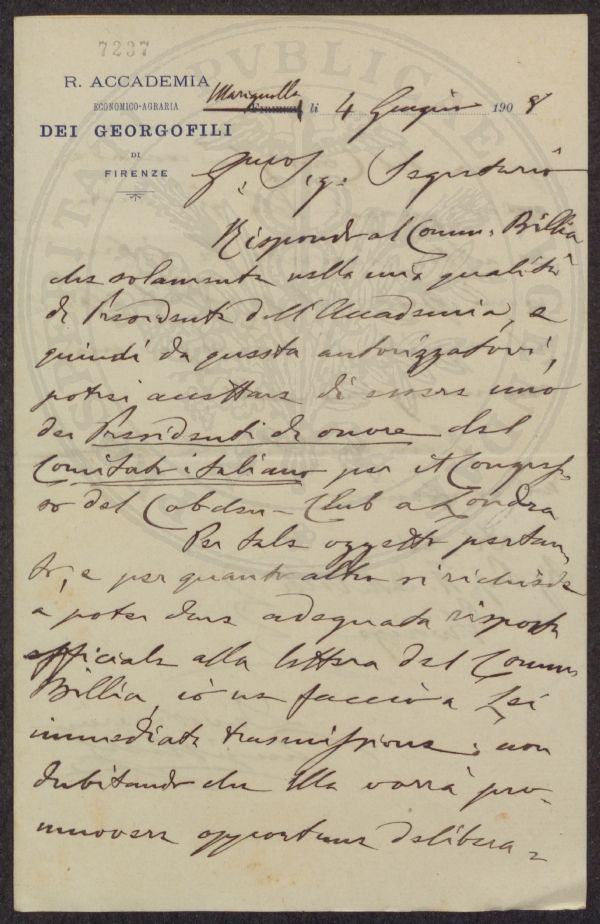 7237
R. ACCADEMIA
ECONOMICO-AGRARIA
DEI GEORGOFILI
DI
FIRENZE
Marignolle li 4 Giugno 1908
Sig: Segretario
Rispondo al Comm. Billia
che solamente nella mia qualità
di Presidente dell'Accademia, e
quindi da questa autorizzatovi,
potrei accettare di essere uno
dei Presidenti di onore del
Comitato italiano per il Congres-
so del Cobden-Club a Londra
Per tale oggetto pertan-
to, e per quanto altro si richiede
a poter dare adeguata risposta
officiale alla lettera del Comm.
Billia, io ne faccio a Lei
immediata trasmissione; non
dubitando che Ella vorrà pro-
muovere opportune delibera=